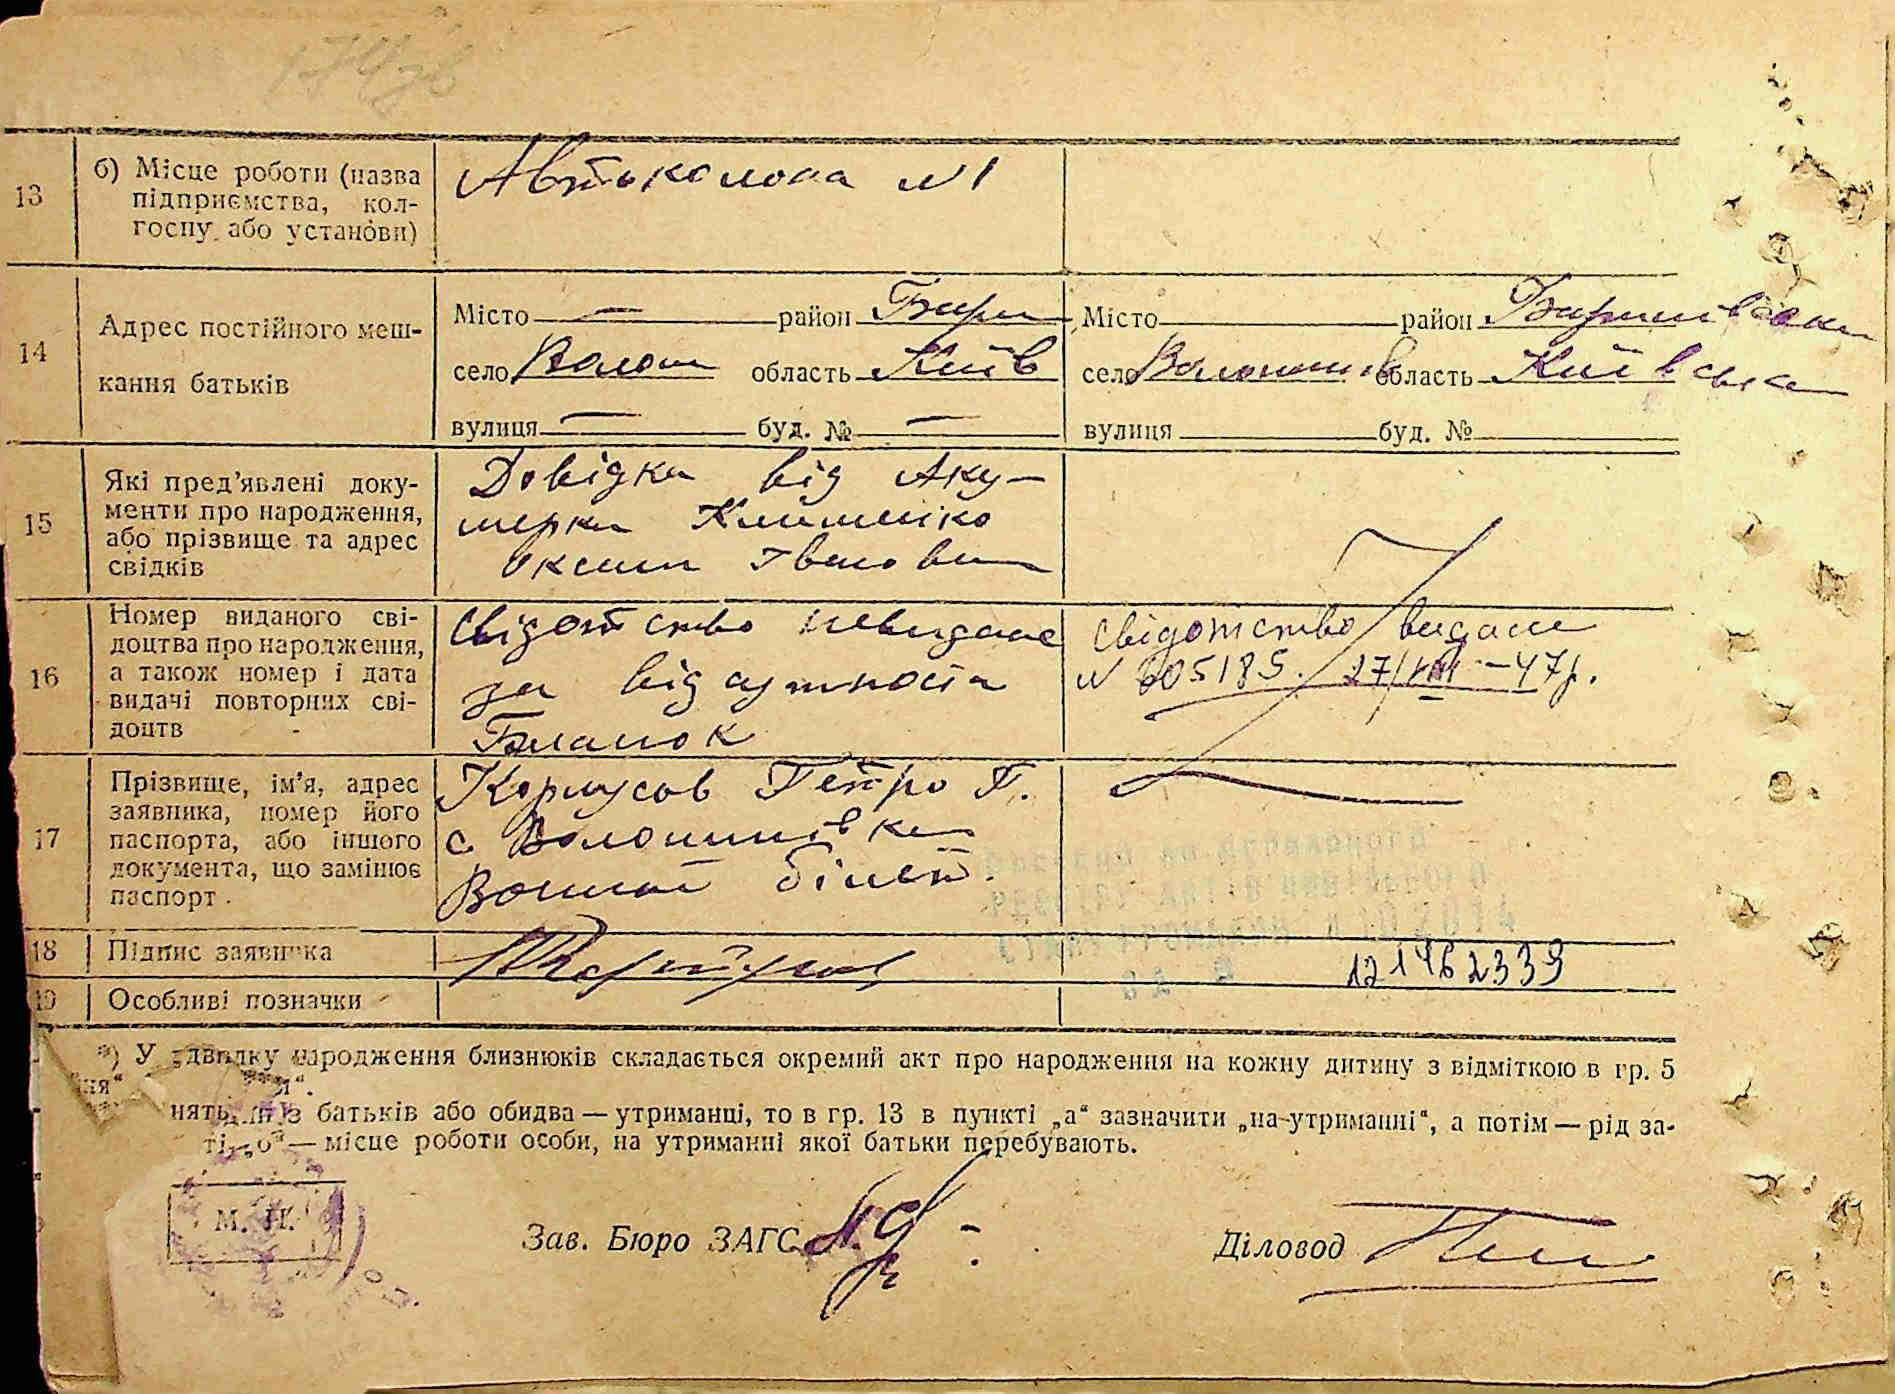 13 б) Місце роботи (назва підприємства, колгоспу або установи) Автоколона №1
14 Адрес постійного мешкання батьків
Місто — район Бари Місто район Баришівськ
село Волош область Київ село Волошинів область Київська
вулиця — буд. № — вулиця буд. №
15 Які пред'явлені доку-
менти про народження,
або прізвище та адрес
свідків
Довідка від Аку-
шерки Клименко
Оксани Івановни
16 Номер виданого сві-
доцтва про народження,
а також номер і дата
видачі повторних сві-
доцтв
Свідотство невидане
за відсутності
Бланок
свідотство видане
N 605185. 27/VIII – 47р.
17 Прізвище, ім'я, адрес
заявника, номер його
паспорта, або іншого
документа, що замінює
паспорт
Корпусов Петро П.
с Волошинівка
Воений білет.
18 Підпис заявника
12 1462339
19 Особливі позначки
*) У випадку народження близнюків складається окремий акт про народження на кожну дитину з відміткою в гр. 5
батьків або обидва — утриманці, то в гр. 13 в пункті „а“ зазначити „на утриманні“, а потім — рід за-
— місце роботи особи, на утриманні якої батьки перебувають.
М. П.
Зав. Бюро ЗАГС Діловод